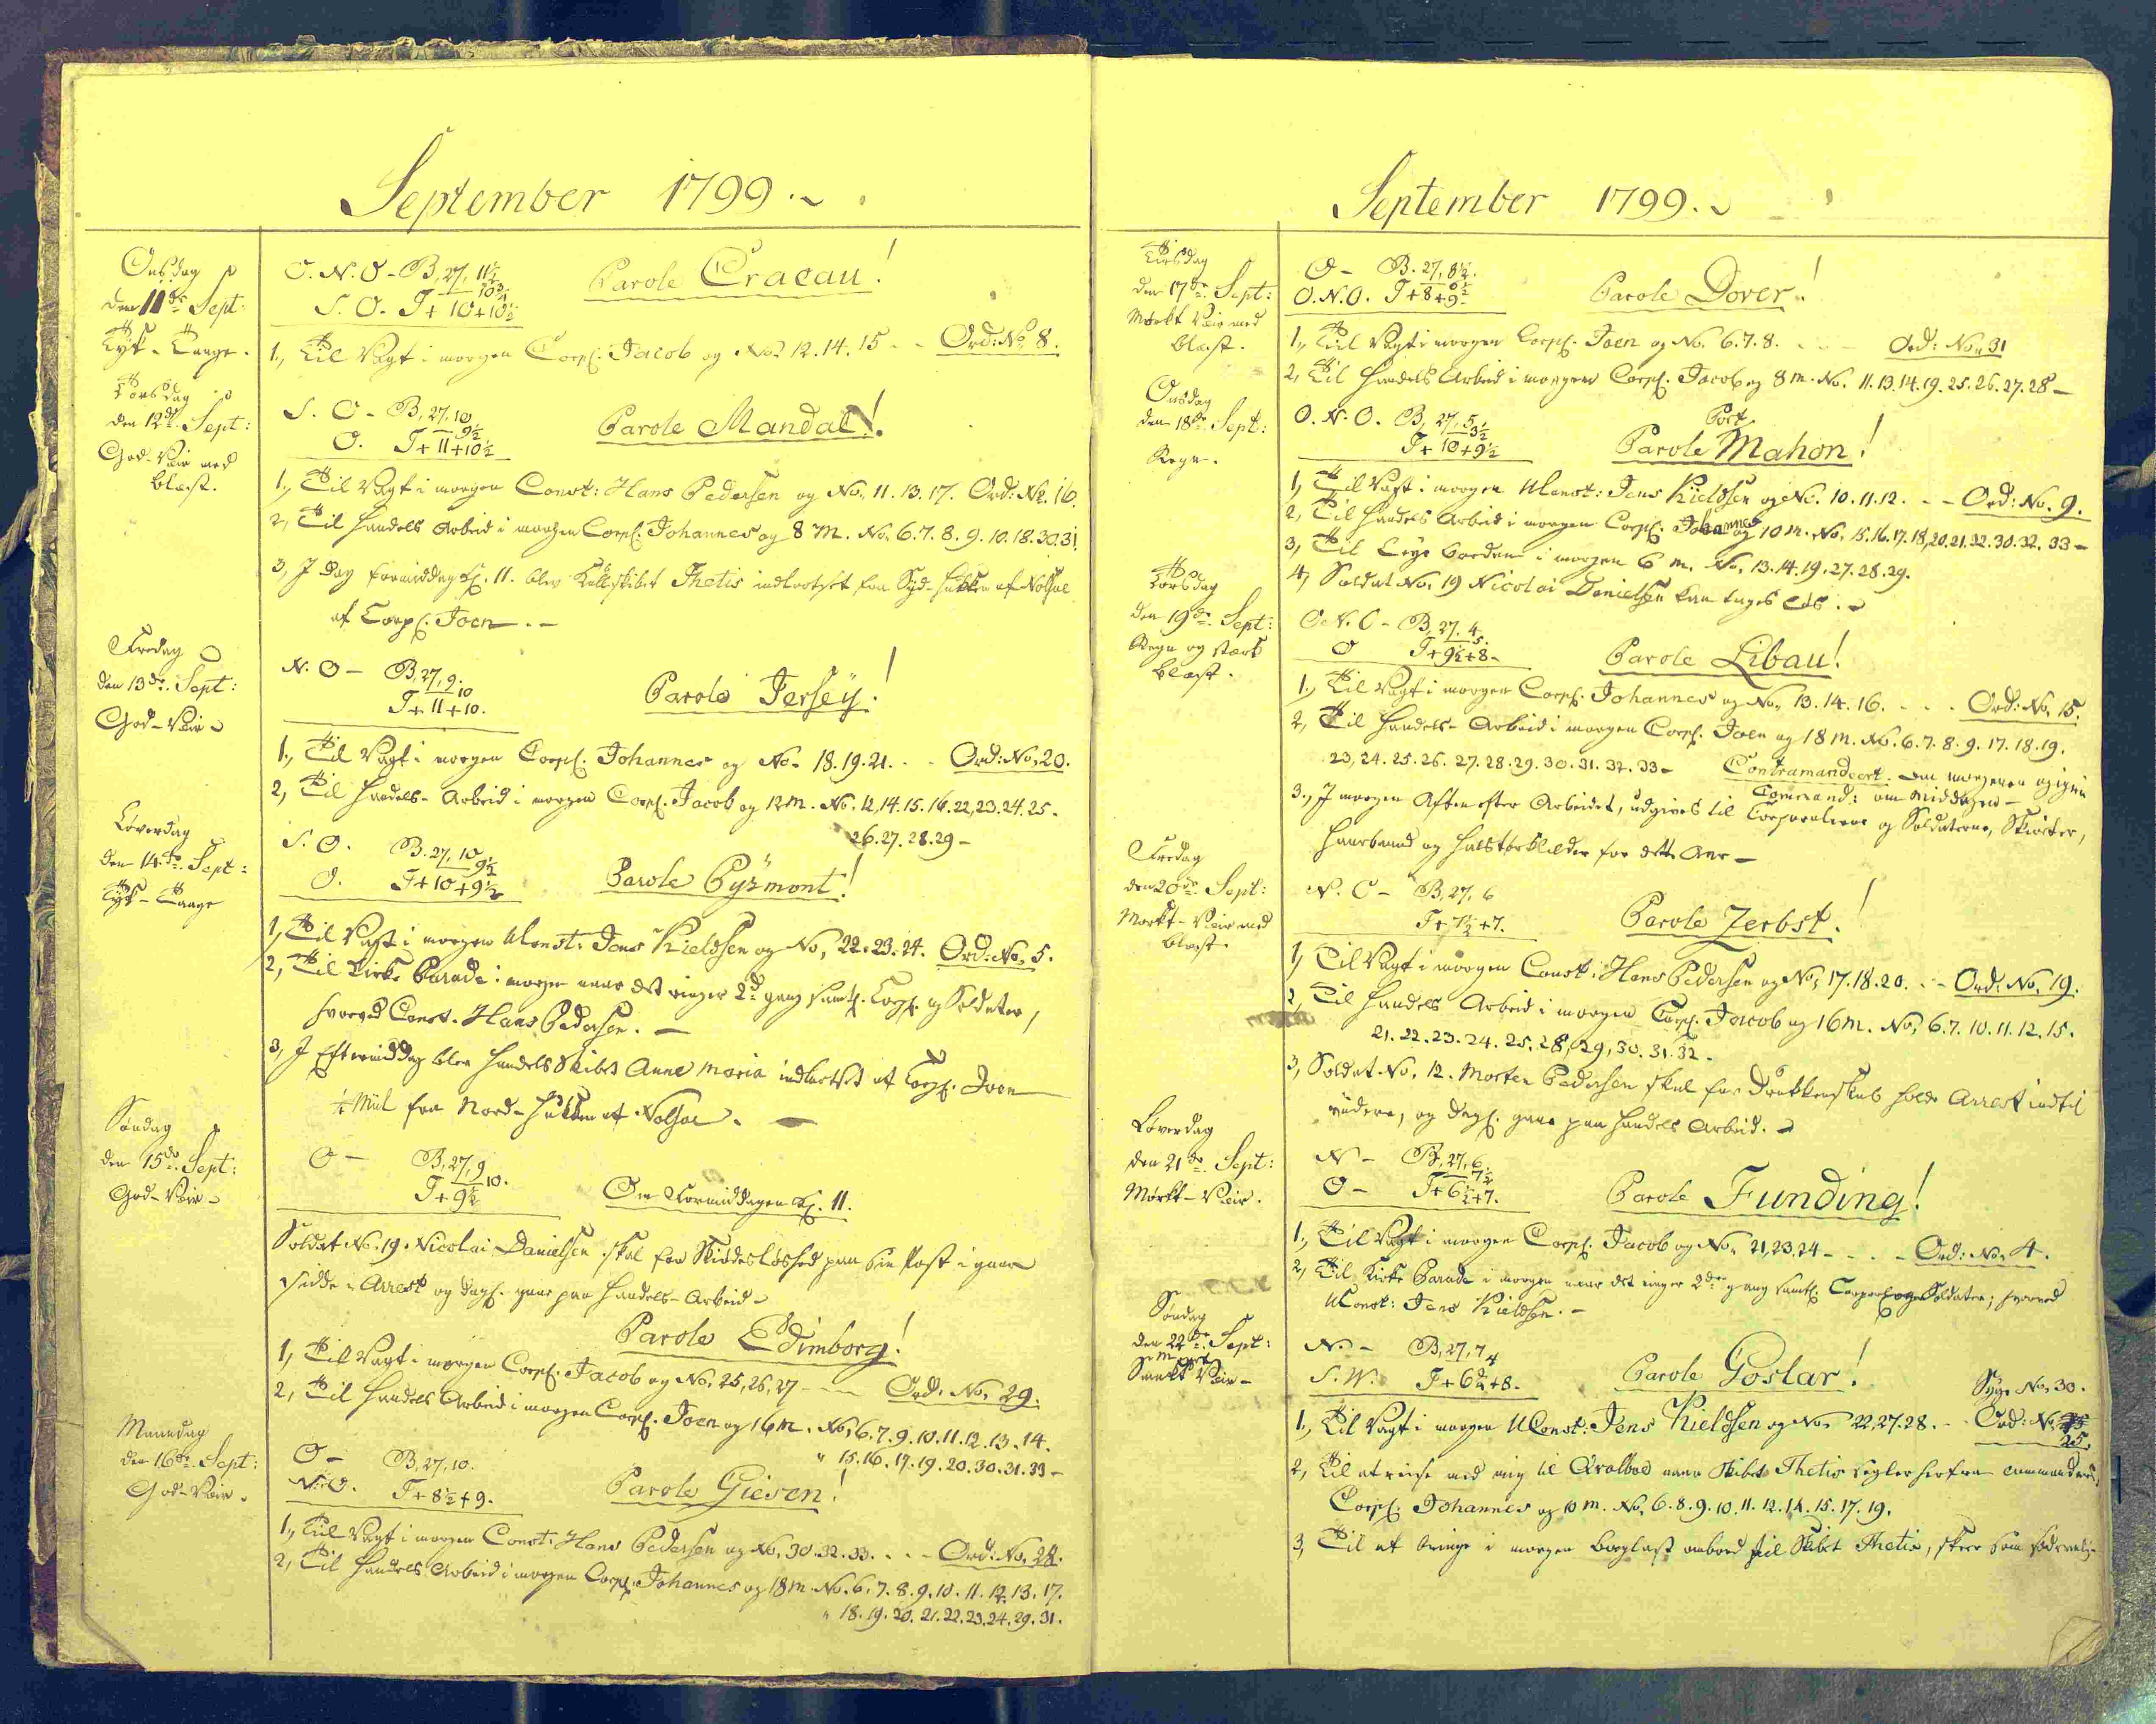 September 1799.
Onsdag
den 11te Sept:
Tyk-Taage.
O.N.O - B, 27, 11½
10¾
S.O. T+ 10+10½
Parole Cracau!
1, Til Vagt i morgen Corpl. Jacob og No. 12.14.15 - - Ord: No. 8.
Torsdag
den 12te Sept:
God-Veir med
blæst.
S.O - B, 27, 10
9½
O. T+11+10½
Parole Mandal!
1, Til Vagt i morgen Const: Hans Pedersen og No. 11.13.17. Ord: No. 16.
2, Til Handels Arbeid i morgen Corpl. Johannes og 8 M. No. 6.7.8.9.10.18.30.31.
3, I Dag formiddag Kl. 11. blev Skibet Thetis indlootset fra Syd- af Nolsøe
af Corpl. Joen. -
Fredag
den 13de Sept:
God-Veir
N.O - B, 27, 9.
10
T+11+10.
Parole Jersey!
1, Til Vagt i morgen Corpl. Johannes og No. 18.19.21. - - Ord: No. 20.
2, Til Handels-Arbeid i morgen Corpl. Jacob og 12 M. No. 12.14.15.16.22.23.24.25.
26.27.28.29 -
Løverdag
den 14de Sept:
Tyk-Taage
S.O. B. 27, 10
9½
O. T+10+9½
Parole Pyrmont!
1, Til Vagt i morgen UConst: Jens Kieldsen og No. 22.23.24. Ord: No. 5.
2, Til Kirke Parade i morgen naar det ringer 2d gang samtl. Corpl. og Soldater,
hvorved Const. Hans Pedersen. -
3, I Eftermiddag blev Handels Skibet Anne Maria indlootset af Corpl. Joen
¼ Miil fra Nord- af Nolsøe. -
Søndag
den 15de Sept:
God-Veir -
O - B, 27, 9
10.
T+9½
Om Formiddagen Kl. 11.
Soldat No. 19. Nicolai Danielsen skal for Skiødesløshed paa sin Post i gaar
sidde i Arrest og dagl. gaae paa Handels-Arbeid -
Parole Edimborg!
1, Til Vagt i morgen Corpl. Jacob og No. 25, 26, 27 - - Ord: No. 29.
2, Til Handels Arbeid i morgen Corpl. Joen og 16 M. No. 6.7.9.10.11.12.13.14.
" 15.16.17.19.20.30.31.33 -
Mandag
den 16de Sept:
God-Veir.
O - B, 27, 10.
N.O. T+8½+9.
Parole Giesen!
1, Til Vagt i morgen Const: Hans Pedersen og No. 30.32.33. - - - Ord: No. 28.
2, Til Handels Arbeid i morgen Corpl. Johannes og 18 M. No. 6.7.8.9.10.11.12.13.17.
" 18.19.20.21.22.23.24.29.31.
September 1799.
Tirsdag
den 17de Sept:
Mørkt Veir med
blæst.
O - B. 27, 8½.
6½
O.N.O. T+8+9½
Parole Dover!
1, Til Vagt i morgen Corpl. Joen og No. 6.7.8. - - - Ord: No. 31
2, Til Handels Arbeid i morgen Corpl. Jacob og 8 M. No. 11.13.14.19.25.26.27.28 -
Onsdag
den 18de Sept:
Regn.
O.N.O. B, 27, 5
3½
T+10+9½
Port
Parole Mahon!
1, Til Vagt i morgen UConst: Jens Kieldsen og No. 10.11.12. - - Ord: No. 9.
2, Til Handels Arbeid i morgen Corpl. Johannes og 10 M. No. 15.16.17.18.20.21.22.30.32.33 -
3, Til i morgen 6 M. No. 13.14.19.27.28.29.
4, Soldat No. 19 Nicolai Danielsen kan tages
Torsdag
den 19de Sept:
Regn og stærk
blæst.
O.N.O - B, 27. 4
5.
O T+9½+8 -
Parole Libau!
1, Til Vagt i morgen Corpl. Johannes og No. 13.14.16. - - - Ord: No. 15.
2, Til Handels-Arbeid i morgen Corpl. Joen og 18 M. No. 6.7.8.9.17.18.19.
23, 24.25.26.27.28.29.30.31.32.33 - Contramandeert. om morgenen og igien
Command: om Middagen -
3, I morgen Aften efter Arbeidet, udgives til Corporalerne og Soldaterne, Skiorter,
Haarbaand og Halstørklæder for dette Aar -
Fredag
den 20de Sept:
Mørkt-Veir med
blæst.
N.O - B, 27, 6
T+7½+7.
Parole Zerbst!
1, Til Vagt i morgen Const: Hans Pedersen og No. 17.18.20. - - Ord: No. 19.
2, Til Handels Arbeid i morgen Corpl. Jacob og 16 M. No. 6.7.10.11.12.15.
21.22.23.24.25.28, 29, 30.31.32.
3, Soldat No. 12. Morten Pedersen skal for Drukkenskab holde Arrest indtil
videre, og dagl. gaae paa Handels Arbeid. -
Løverdag
den 21de Sept:
Mørkt-Veir.
N - B, 27, 6.
7½
O - T+6½+7.
Parole Funding!
1, Til Vagt i morgen Corpl. Jacob og No. 21, 23, 24 - - - Ord: No. 4.
2, Til Kirke Parade i morgen naar det ringer 2den gang samtl. Corporl. og Soldater; hvorved
UConst: Jens Kieldsen. -
Søndag
den 22de Sept:
Smukt Veir -
N. - B, 27, 7
4
S.W. T+6½+8.
Parole Goslar!
Syge No. 30.
1, Til Vagt i morgen UConst: Jens Kieldsen og No. 22, 27.28. - - Ord: No.
25.
2, Til at reise med mig til Qvalbøe naar Skibet Thetis seigler herfra commanderes,
Corpl. Johannes og 10 M. No. 6.8.9.10.11.12.14.15.17.19.
3, Til at bringe i morgen Baglast ombord til Skibet Thetis, skeer som